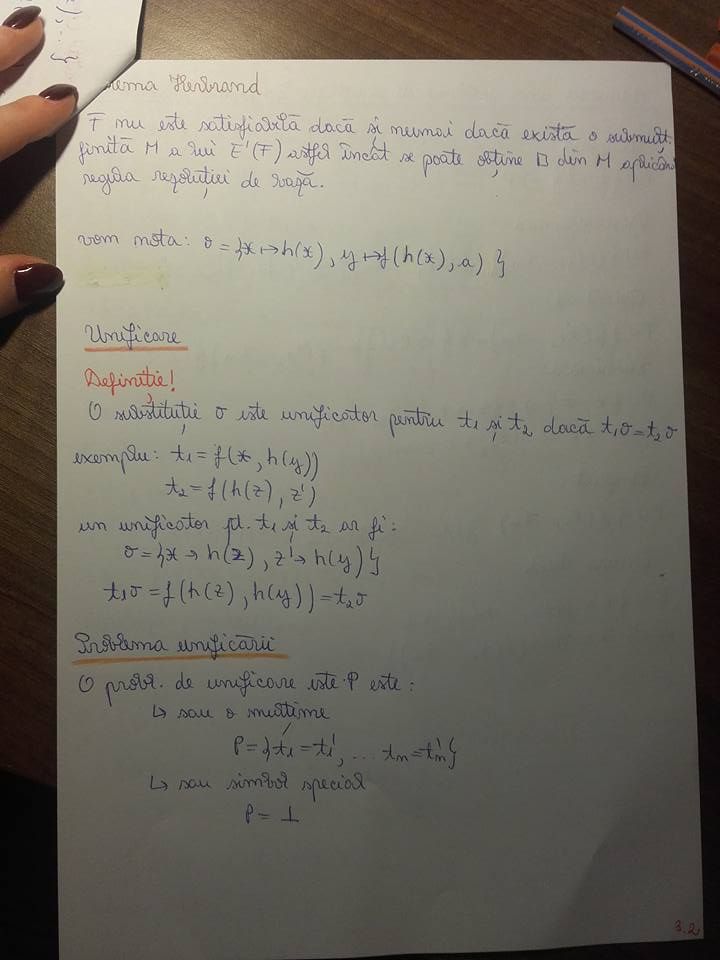 rema Herbrand
F nu este satisfiabilă dacă și numai dacă există o submulț.
finită M a lui E'(F) astfel încât se poate obține □ din M aplicând
regula rezoluției de bază.
vom nota: σ = {x ↦ h(x), y ↦ f(h(x), a) }
Unificare
Definiție!
O substituție σ este unificator pentru t₁ și t₂ dacă t₁σ = t₂σ
exemplu: t₁ = f(x, h(y))
t₂ = f(h(z), z')
un unificator pt. t₁ și t₂ ar fi:
σ = {x → h(z), z' → h(y)}
t₁σ = f(h(z), h(y)) = t₂σ
Problema unificării
O probl. de unificare este P este:
↳ sau o mulțime
P = {t₁ = t₁', ... tₙ = tₙ'}
↳ sau simbol special
P = ⊥
3.2